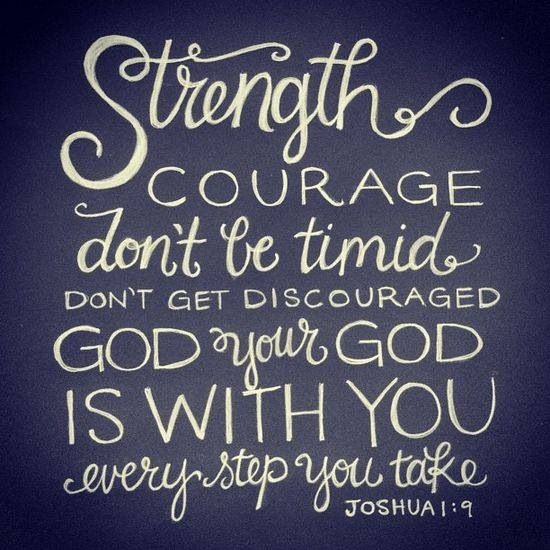 Strength
COURAGE
don't be timid
DON'T GET DISCOURAGED
GOD your GOD
IS WITH YOU
every step you take
JOSHUA 1:9